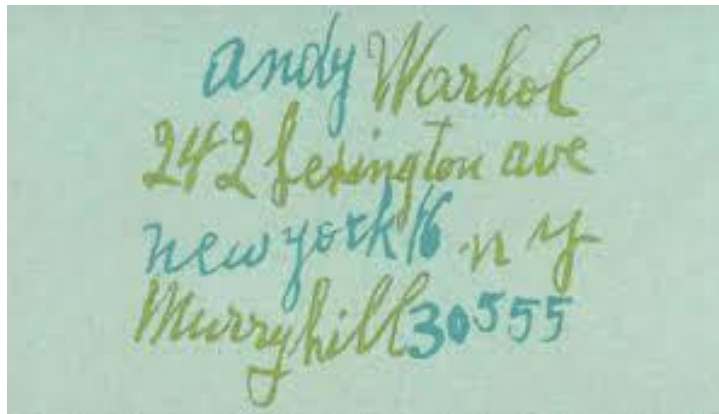 andy Warhol
242 Lexington ave
new york 16 n y
Murryhill 30555